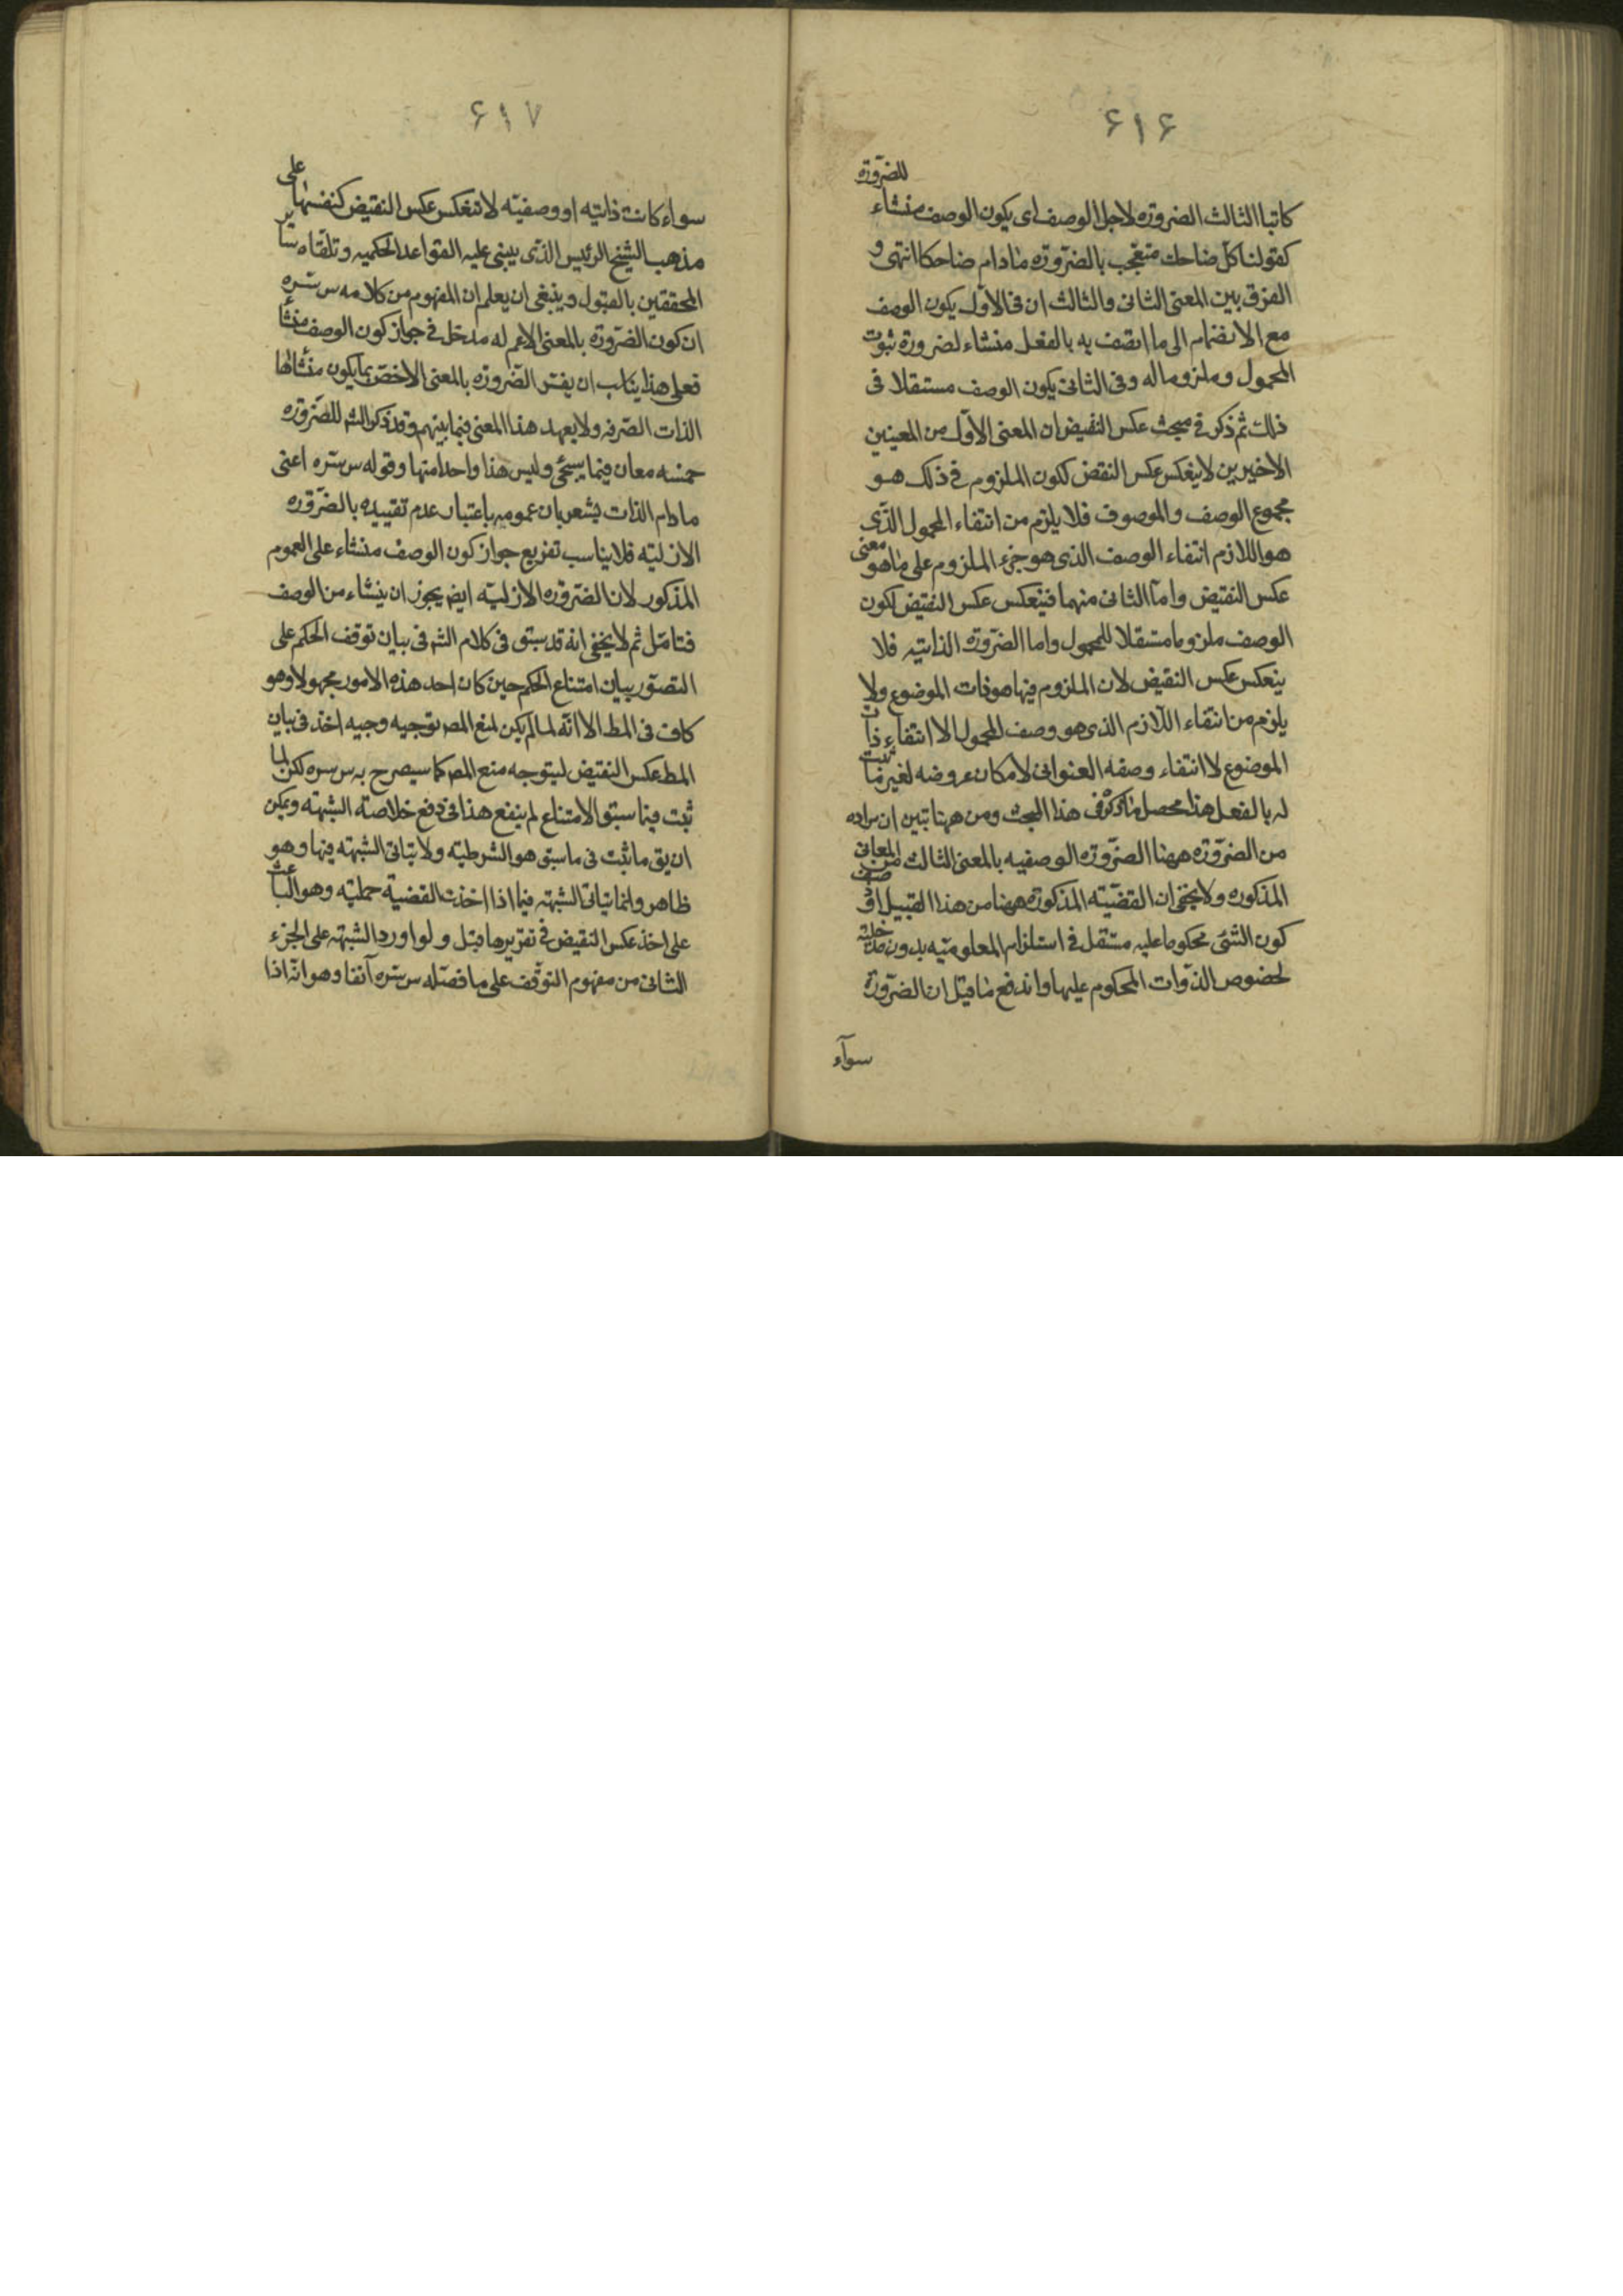 ۶۱۶
للضرورة
كاتبا الثالث الضرورة لاجل الوصف اى يكون الوصف منشاء
كقولنا كل ضاحك متعجب بالضرورة مادام ضاحكا انتهى و
الفرق بين المعنى الثانى والثالث ان فى الاول يكون الوصف
مع الانضمام الى ما اتصف به بالفعل منشاء لضرورة ثبوت
المحمول وملزوما له وفى الثانى يكون الوصف مستقلا فى
ذلك ثم ذكر فى مبحث عكس النقيض ان المعنى الاول من المعنيين
الاخيرين لا ينعكس عكس النقض لكون الملزوم فى ذلك هو
مجموع الوصف والموصوف فلا يلزم من انتفاء المحمول الذى
هو اللازم انتفاء الوصف الذى هو جزء الملزوم على ما هو معنى
عكس النقيض واما الثانى منهما فينعكس عكس النقيض لكون
الوصف ملزوما مستقلا للمحمول واما الضرورة الذاتيه فلا
ينعكس عكس النقيض لان الملزوم فيها هو ذات الموضوع ولا
يلزم من انتفاء اللازم الذى هو وصف المحمول الا انتفاء ذات
الموضوع لا انتفاء وصفه العنوانى لامكان عروضه لغير ما ثبت
له بالفعل هذا محصل ما ذكره فى هذا المبحث ومن ههنا تبين ان مراده
من الضرورة ههنا الضرورة الوصفيه بالمعنى الثالث من المعانى
المذكوره ولا يخفى ان القضيته المذكورة ههنا من هذا القبيل اذ وصف
كون الشئ محكوما عليه مستقل فى استلزام المعلوميته بدون مدخليته
لخصوص الذوات المحكوم عليها واندفع ما قيل ان الضرورة
سوآء
۶۱۷
سواء كانت ذاتيه او وصفيه لا تنعكس عكس النقيض كنفسها على
مذهب الشيخ الرئيس الذى يبنى عليه القواعد الحكميه وتلقاه ساير
المحققين بالقبول وينبغى ان يعلم ان المفهوم من كلامه س سره
ان كون الضرورة بالمعنى الاعم له مدخل فى جواز كون الوصف منشأ
فعلى هذا يناسب ان يفسر الضرورة بالمعنى الاخص بما يكون منشائها
الذات الصرفه ولا يعهد هذا المعنى فيما بينهم وقد ذكر الش للضرورة
خمسه معان فيما سيجئ وليس هذا واحدا منها وقوله س سره اعنى
مادام الذات يشعر بان عمومه باعتبار عدم تقييده بالضرورة
الازليته فلا يناسب تفريع جواز كون الوصف منشاء على العموم
المذكور لان الضرورة الازليته ايض يجوز ان ينشاء من الوصف
فتامل ثم لا يخفى انه قد سبق فى كلام الش فى بيان توقف الحكم على
التصور بيان امتناع الحكم حين كان احد هذه الامور مجهولا وهو
كاف فى المط الا انه لما لم يكن لمنع المص توجيه وجيه اخذ فى بيان
المط عكس النقيض ليتوجه منع المص كما سيصرح به س سره لكن لما
ثبت فيما سبق الامتناع لم ينفع هذا فى دفع خلاصة الشبهته ويمكن
ان يق ما ثبت فى ما سبق هو الشرطيته ولا يتاتى الشبهته فيها وهو
ظاهر وانما يتاتى الشبهته فيما اذا اخذت القضية حمليته وهو الباعث
على اخذ عكس النقيض فى تقريرها قبل ولو اورد الشبهته على الجزء
الثانى من مفهوم التوقف على ما فصله س سره آنفا وهو انه اذا